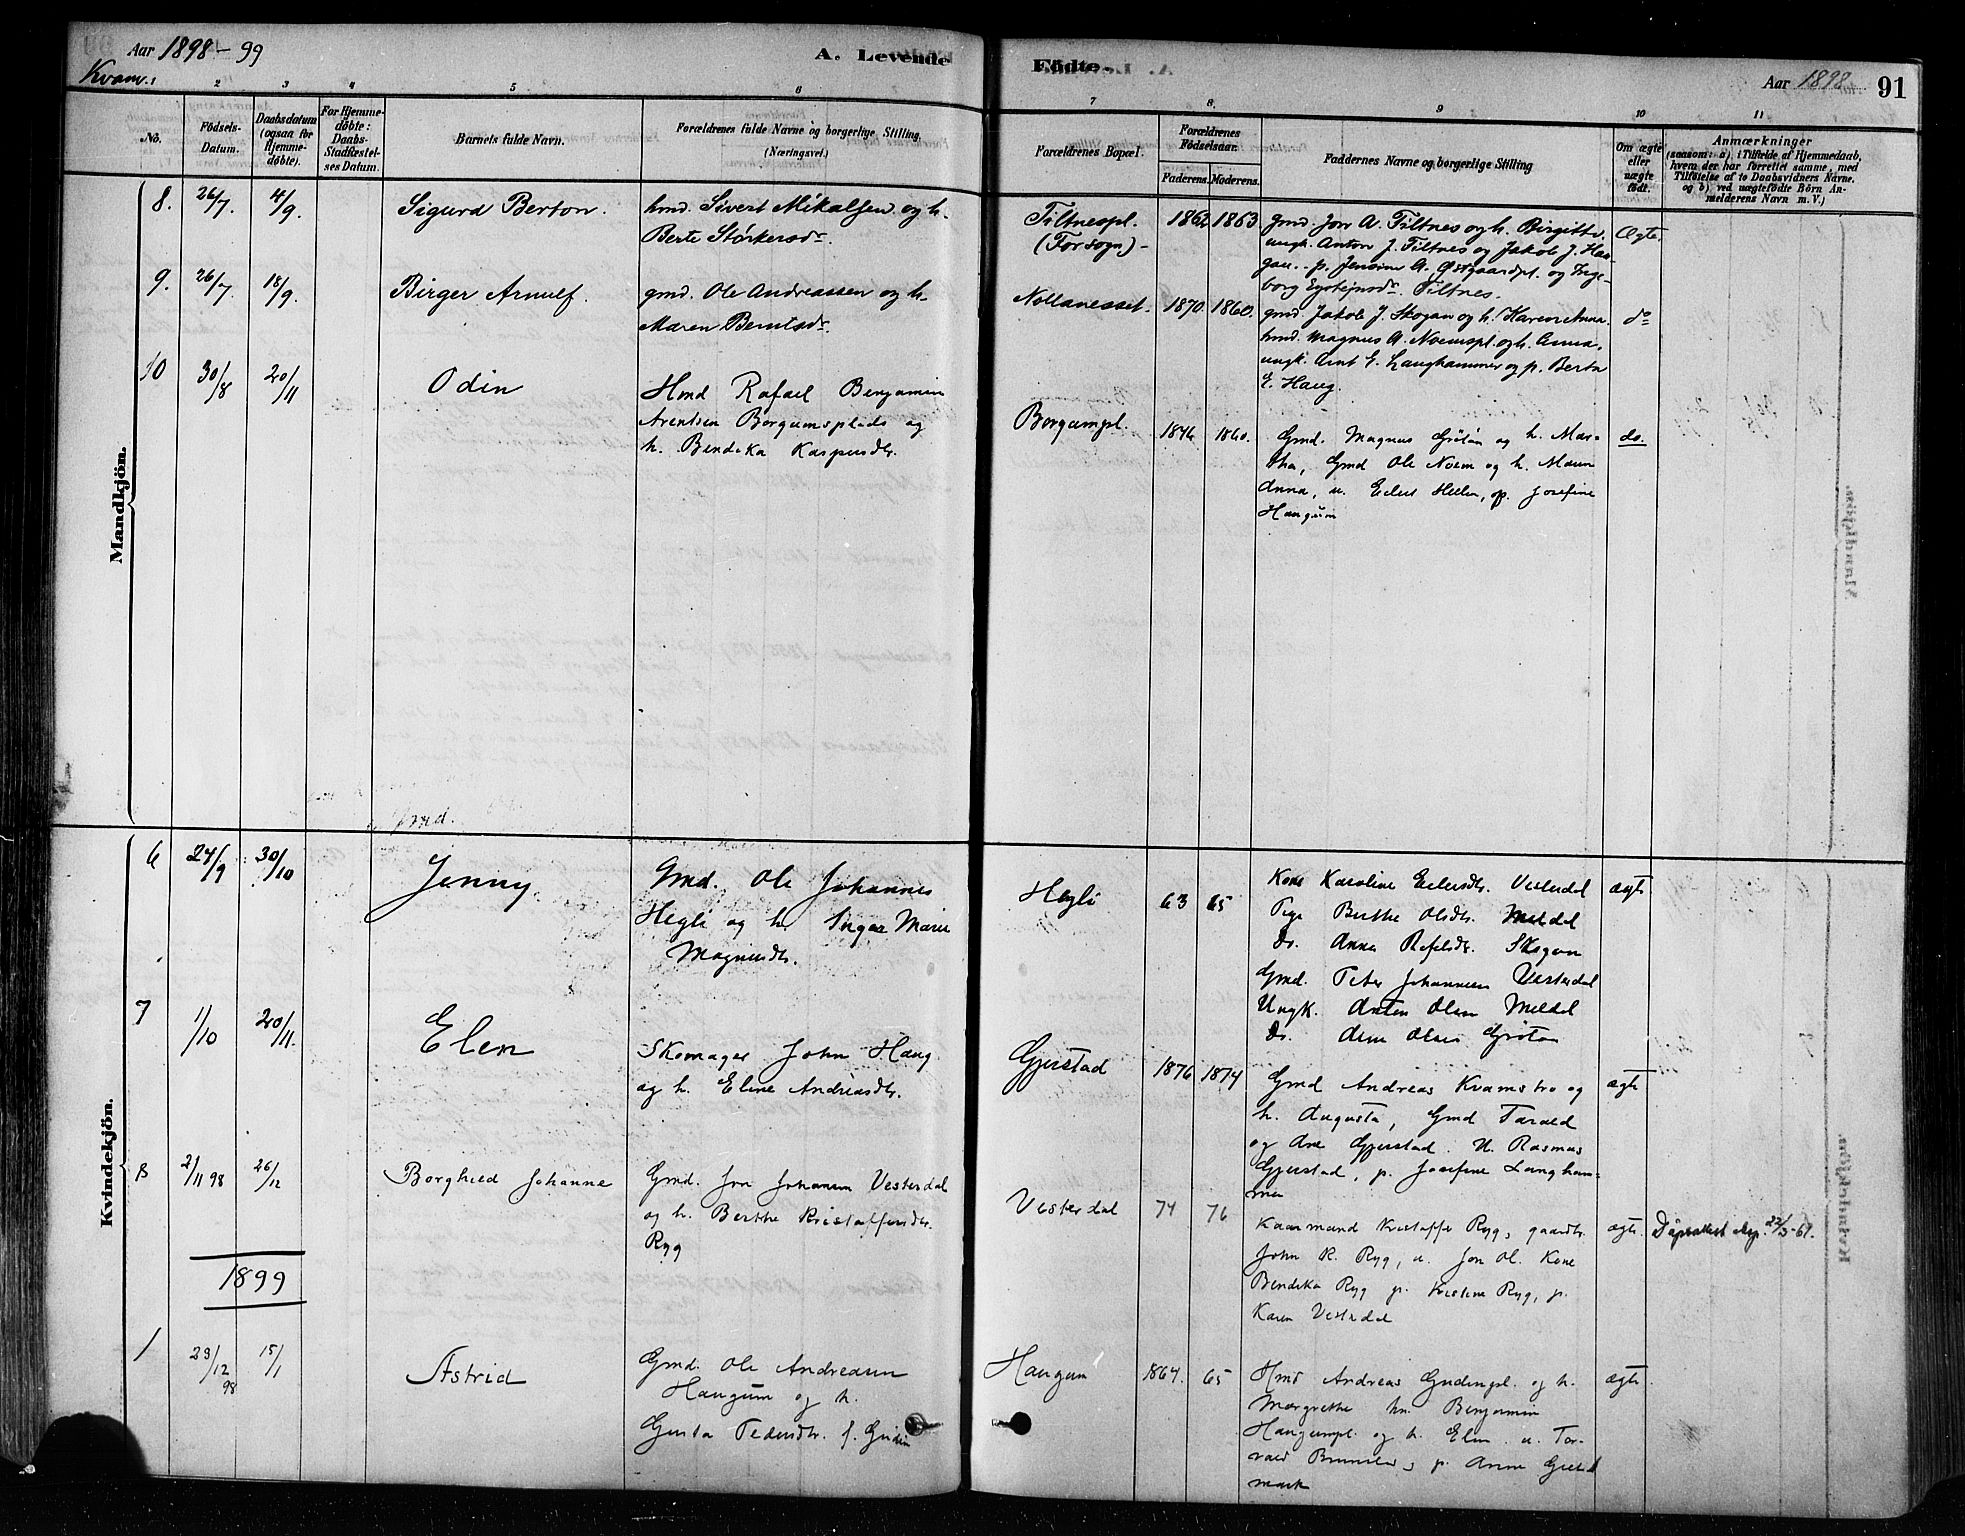 Aar 1898-99
A. Levende
Födte.
Aar 1898
91
Kvam.
1 2 3 4 5 6 7 8 9 10 11
No.
Födsels-Datum.
Daabsdatum (ogsaa for Hjemmedöbte).
For Hjemmedöbte: Daabs-Stadfæstelses Datum.
Barnets fulde Navn.
Forældrenes fulde Navne og borgerlige Stilling (Næringsvei.)
Forældrenes Bopæl.
Forældrenes Födselsaar.
Faderens. Moderens.
Faddernes Navne og borgerlige Stilling
Om ægte eller uægte födt.
Anmærkninger
(saasom: a) i Tilfælde af Hjemmedaab, hvem der har forrettet samme, med Tilföielse af to Daabsvidners Navne, og b) ved uægtefödte Börn Anmelderens Navn m. V.)
Mandkjön.
8. 26/7. 4/9. Sigurd Berton.
hmd. Sivert Mikalsen og h.
Berte Størkersdr.
Tiltnespl.
(Forsogn)
1862 1863
gmd. Jon A. Tiltnes og h. Birgitte.
ungk. Anton J. Tiltnes og Jakob J. Haugan.
p. Jensine A. Østgaardpl. og Ingeborg
Eysteinsdr. Tiltnes.
Ægte.
9. 26/7. 18/9. Birger Arnulf.
gmd. Ole Andreassen og h.
Maren Berntsdr.
1870. 1860.
gmd. Jakob J. Skogan og h. Karen Anna.
hmd. Magnus A. Noemspl. og h. Anna.
ungk. Arnt E. Langhammer og p. Berta
E. Haug.
do
10 30/8 20/11 Odin
Hmd Rafael Benjamin
Arentsen Borgumsplads og
h. Bendika Kaspersdtr.
Borgumpl.
1846 1860.
Gmd. Magnus Grötan og h. Martha,
Gmd Ole Noem og h. Maren
Anna, u. Eilert Heilen, p. Josefine
Haugum
do.
Gmd.
Kvindekjön.
6 24/9 30/10 Jenny.
Gmd. Ole Johannes
Hegli og h. Inga Marie
Magnusdtr.
Hegli
63 65
Kone Karoline Eilersdtr. Vesterdal
Pige Berthe Olsdtr. Meldal
Do. Anne Rafelsdtr. Skogan
Gmd. Peter Johannesen Vesterdal
Ungk. Anton Olsen Meldal
Do. Arne Olsen Grötan
ægte
7 1/10 20/11. Elen
Skomager John Haug
og h. Eline Andreasdtr.
Gjerstad
1876 1874
Gmd Andreas Kvamstro og
h. Augusta, Gmd Tarald
og Ane Gjerstad. U. Rasmus
Gjerstad, p. Josefine Langhammer
ægte
8 2/11 98 26/12 Borghild Johanne
Gmd. Jon Johansen Vesterdal
og h. Berthe Kristoffersdtr.
Ryg
Vesterdal
74 76
Kaarmand Kristoffer Ryg, gaardbr.
John K. Ryg, u. Jon Ol. Kone
Bendika Ryg p. Kristine Ryg, p.
Karen Vesterdal
ægte.
Dåpsattest utg. 22/3-61.
1899
1 29/12 98 15/1 Astrid
Gmd. Ole Andreasen
Haugum og h.
Gusta Pedersdtr. f. Gudin
Haugum
1864. 65
Hmd Andreas Gudingpl. og h.
Margrethe hm. Benjamin
Haugumpl. og h. Elen. u. Torvald
p. Anne
mark
ægte.